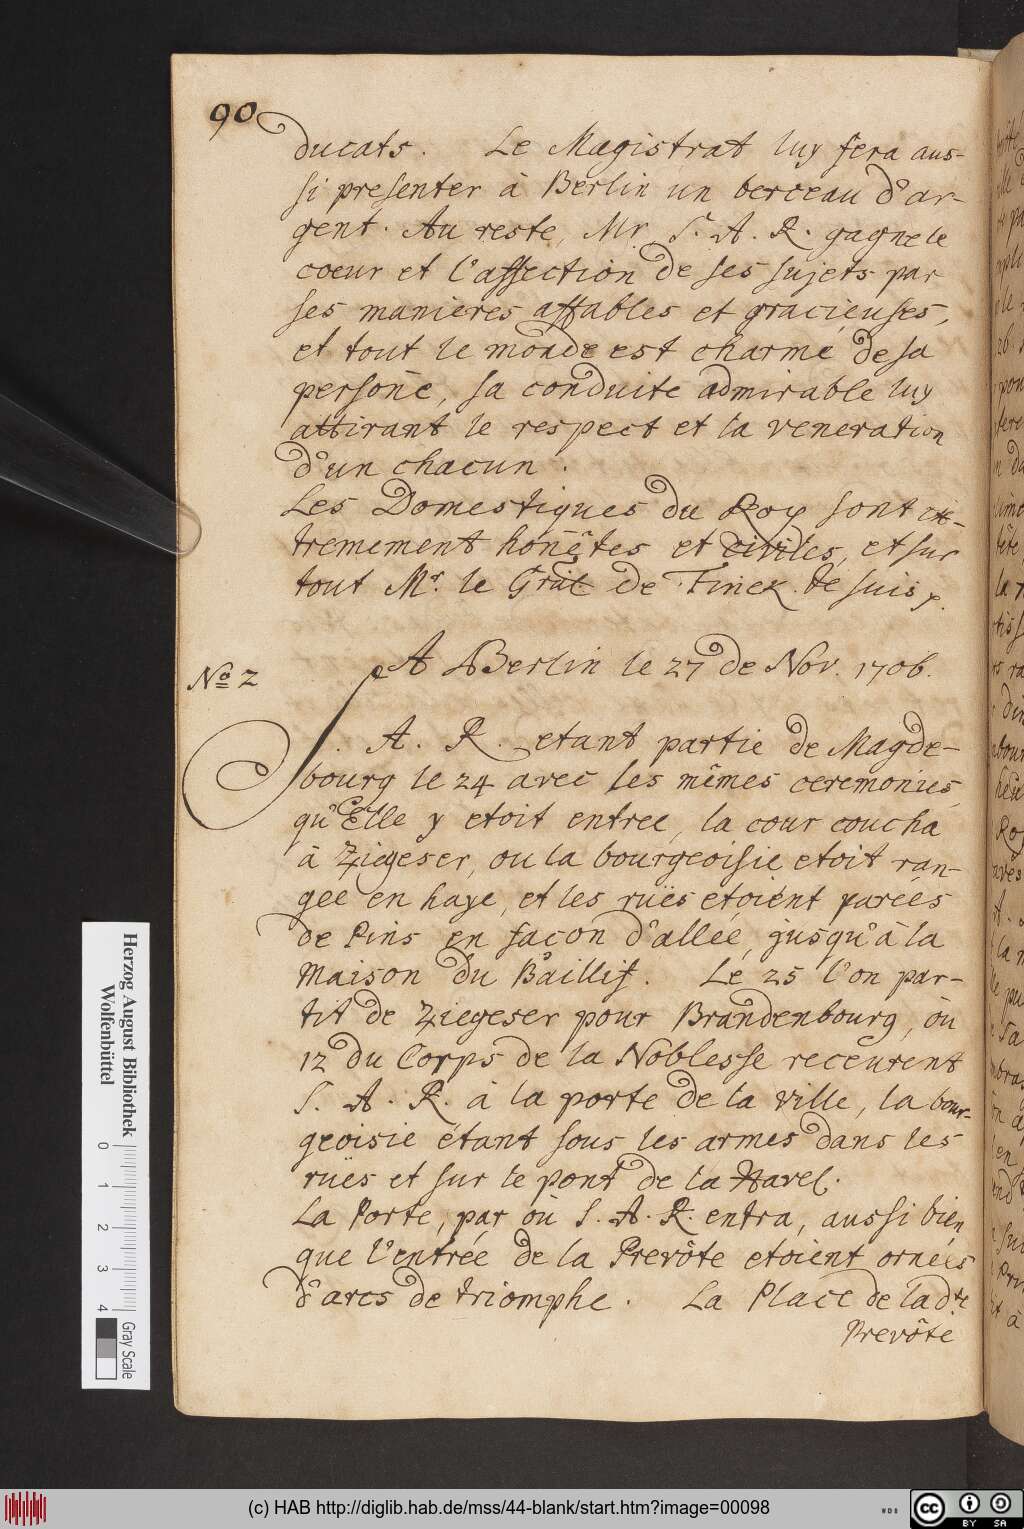 90
ducats. Le Magistrat luy fera aus-
si presenter à Berlin un berceau d'ar-
gent. Au reste, Mr. S. A. R. gagne le
coeur et l'affection de ses sujets par
ses manieres affables et gracieuses,
et tout le monde est charmé de sa
persoñe, sa conduite admirable luy
attirant le respect et la veneration
d'un chacun.
Les Domestiques du Roy sont ex-
tremement hoñêtes et civiles, et sur
tout Mr. le Gräl de Finck. Je suis p.
A Berlin le 27 de Nov. 1706.
No 2
S. A. R. etant partie de Magde-
bourg le 24 avec les mêmes ceremonies,
qu'Elle y etoit entree, la cour coucha
à Ziegeser, ou la bourgeoisie etoit ran-
gee en haye, et les ruës etoient parees
de Pins en façon d'allée, jusqu'à la
maison du Baillif. Le 25 l'on par-
tit de Ziegeser pour Brandenbourg, où
12 du Corps de la Noblesse receurent
S. A. R. à la porte de la ville, la bour-
geoisie étant sous les armes dans les
ruës et sur le pont de la Havel.
La Porte, par où S. A. R. entra, aussi bien
que l'entrée de la Prevôte etoient ornées
d'arcs de triomphe. La Place de la dte
Prevôte
Herzog August Bibliothek
Wolfenbüttel
0 1 2 3 4
Gray Scale
(c) HAB http://diglib.hab.de/mss/44-blank/start.htm?image=00098
WDB
cc BY SA